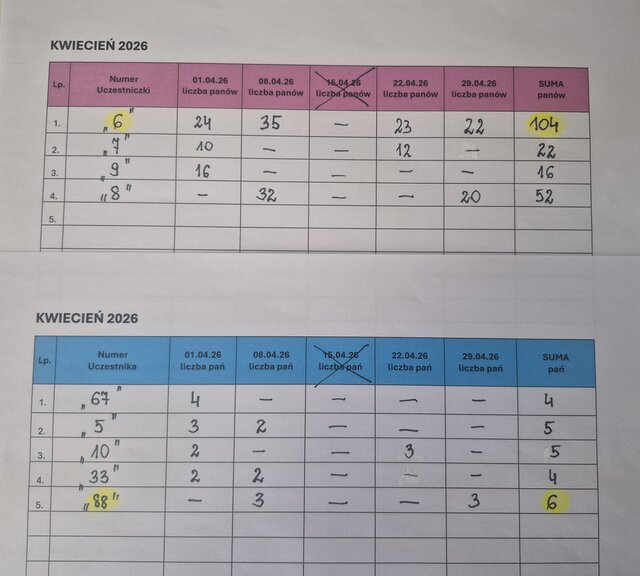 KWIECIEŃ 2026
Lp. Numer Uczestniczki 01.04.26 liczba panów 08.04.26 liczba panów 15.04.26 liczba panów 22.04.26 liczba panów 29.04.26 liczba panów SUMA panów
1. „6” 24 35 — 23 22 104
2. „7” 10 — — 12 — 22
3. „9” 16 — — — — 16
4. „8” — 32 — — 20 52
5.
KWIECIEŃ 2026
Lp. Numer Uczestnika 01.04.26 liczba pań 08.04.26 liczba pań 15.04.26 liczba pań 22.04.26 liczba pań 29.04.26 liczba pań SUMA pań
1. „67” 4 — — — — 4
2. „5” 3 2 — — — 5
3. „10” 2 — — 3 — 5
4. „33” 2 2 — — — 4
5. „88” — 3 — — 3 6